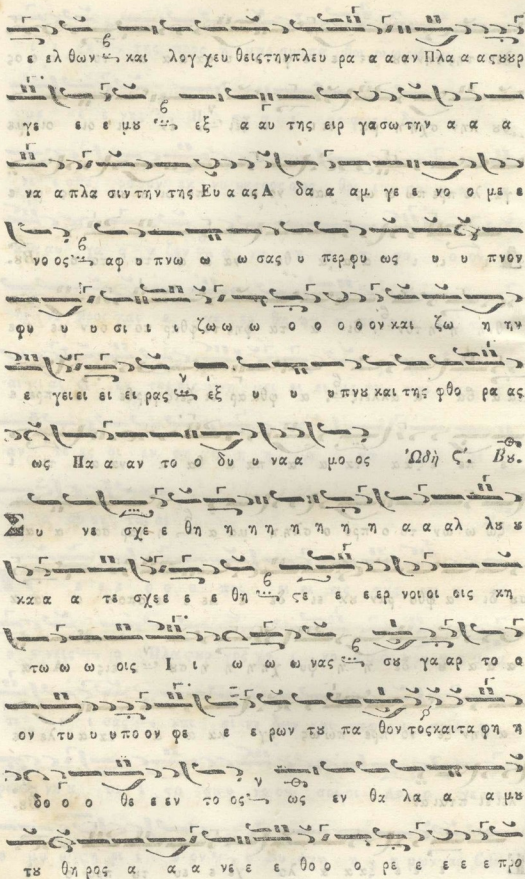 ε ελ θων και λογ χευ θεις την πλευ ρα α α αν Πλα α α τουρ
γε ε ε μου εξ α αυ της ειρ γασω την α α α
να α πλα σιν την της Ευ α ας Α δα α αμ γε ε νο ο με ε
νο ος αφ υ πνω ω ω σας υ περ φυ ως υ υ πνον
φυ υ υ σι ι ι ζω ω ω ο ο ο ο ον και ζω η ην
ε γει ει ει ει ρας εξ υ υ υ πνου και της φθο ρα ας
ως Πα α αν το ο δυ υ να α μο ος Ὠδὴ ϛ΄. Βου.
Συ νε σχε ε θη η η η η η η η η α α αλ λου
κα α α τε σχε ε ε ε θη ϛε ε ε ερ νοι οι οις κη
τω ω ω οις Ι ι ω ω ω νας σου γα αρ το ο
ον τυ υ υ πο ον φε ε ε ρων του πα θον τος και τα φη η
δο ο ο θε ε εν το ος ως εν θα λα α α μου
του θη ρος α α α νε ε ε θο ο ο ρε ε ε ε ε προ